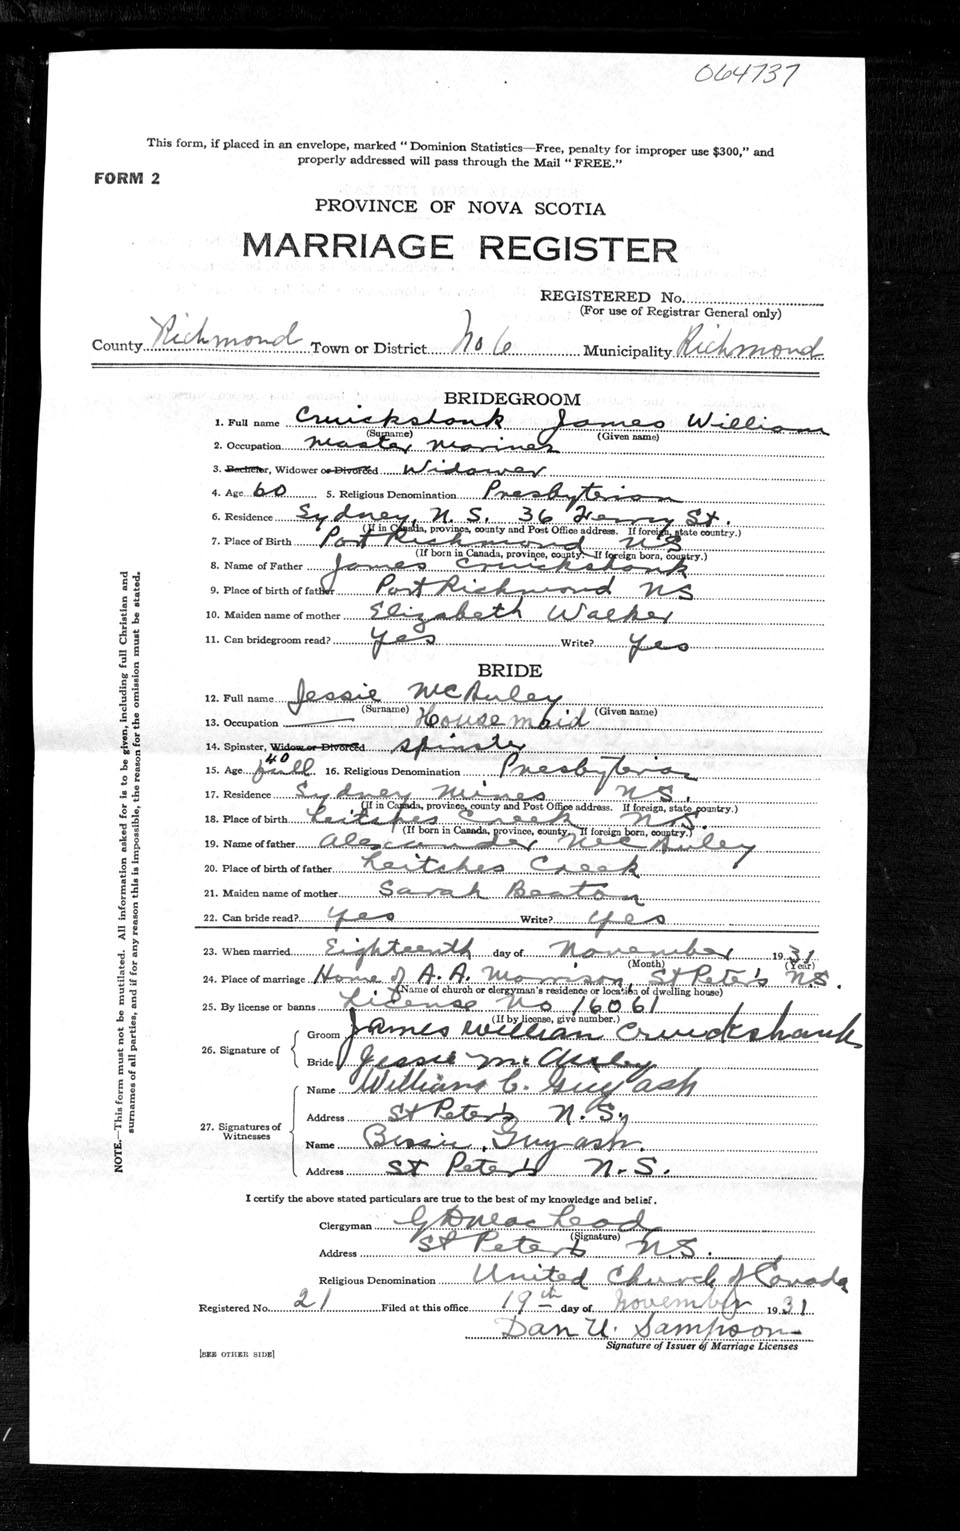 064737
This form, if placed in an envelope, marked "Dominion Statistics—Free, penalty for improper use $300," and
properly addressed will pass through the Mail "FREE."
FORM 2
PROVINCE OF NOVA SCOTIA
MARRIAGE REGISTER
REGISTERED No.
(For use of Registrar General only)
County Richmond Town or District No 6 Municipality Richmond
BRIDEGROOM
1. Full name Cruickshank James William
(Surname) (Given name)
2. Occupation Master Mariner
3. Bachelor, Widower or Divorced Widower
4. Age 60 5. Religious Denomination Presbyterian
6. Residence Sydney N.S. 36 Ferry St.
(If in Canada, province, county and Post Office address. If foreign, state country.)
7. Place of Birth Port Richmond NS
(If born in Canada, province, county. If foreign born, country.)
8. Name of Father James Cruickshank
9. Place of birth of father Port Richmond NS
10. Maiden name of mother Elizabeth Walker
11. Can bridegroom read? Yes Write? Yes
BRIDE
12. Full name Jessie McAuley
(Surname) (Given name)
13. Occupation Housemaid
14. Spinster, Widow or Divorced Spinster
40
15. Age 16. Religious Denomination Presbyterian
17. Residence Sydney Mines NS.
(If in Canada, province, county and Post Office address. If foreign, state country.)
18. Place of birth Leitches Creek N.S.
(If born in Canada, province, county. If foreign born, country.)
19. Name of father Alexander McAuley
20. Place of birth of father Leitches Creek
21. Maiden name of mother Sarah Beaton
22. Can bride read? Yes Write? Yes
23. When married Eighteenth day of November 1931
(Month) (Year)
24. Place of marriage Home of A. A. Morrison, St Peter's NS.
(Name of church or clergyman's residence or location of dwelling house)
25. By license or banns License No 16061
(If by license, give number.)
26. Signature of
Groom James William Cruickshank
Bride Jessie McAuley
27. Signatures of Witnesses
Name William C. Guyash
Address St Peter's N.S.
Name Bessie Guyash.
Address St Peter's N.S.
I certify the above stated particulars are true to the best of my knowledge and belief.
Clergyman G D MacLeod
(Signature)
Address St Peter's N.S.
Religious Denomination United Church of Canada
Registered No. 21 Filed at this office 19th day of November 1931
Dan U. Sampson
Signature of Issuer of Marriage Licenses
[SEE OTHER SIDE]
NOTE.—This form must not be mutilated. All information asked for is to be given, including full Christian and
surnames of all parties, and if for any reason this is impossible, the reason for the omission must be stated.